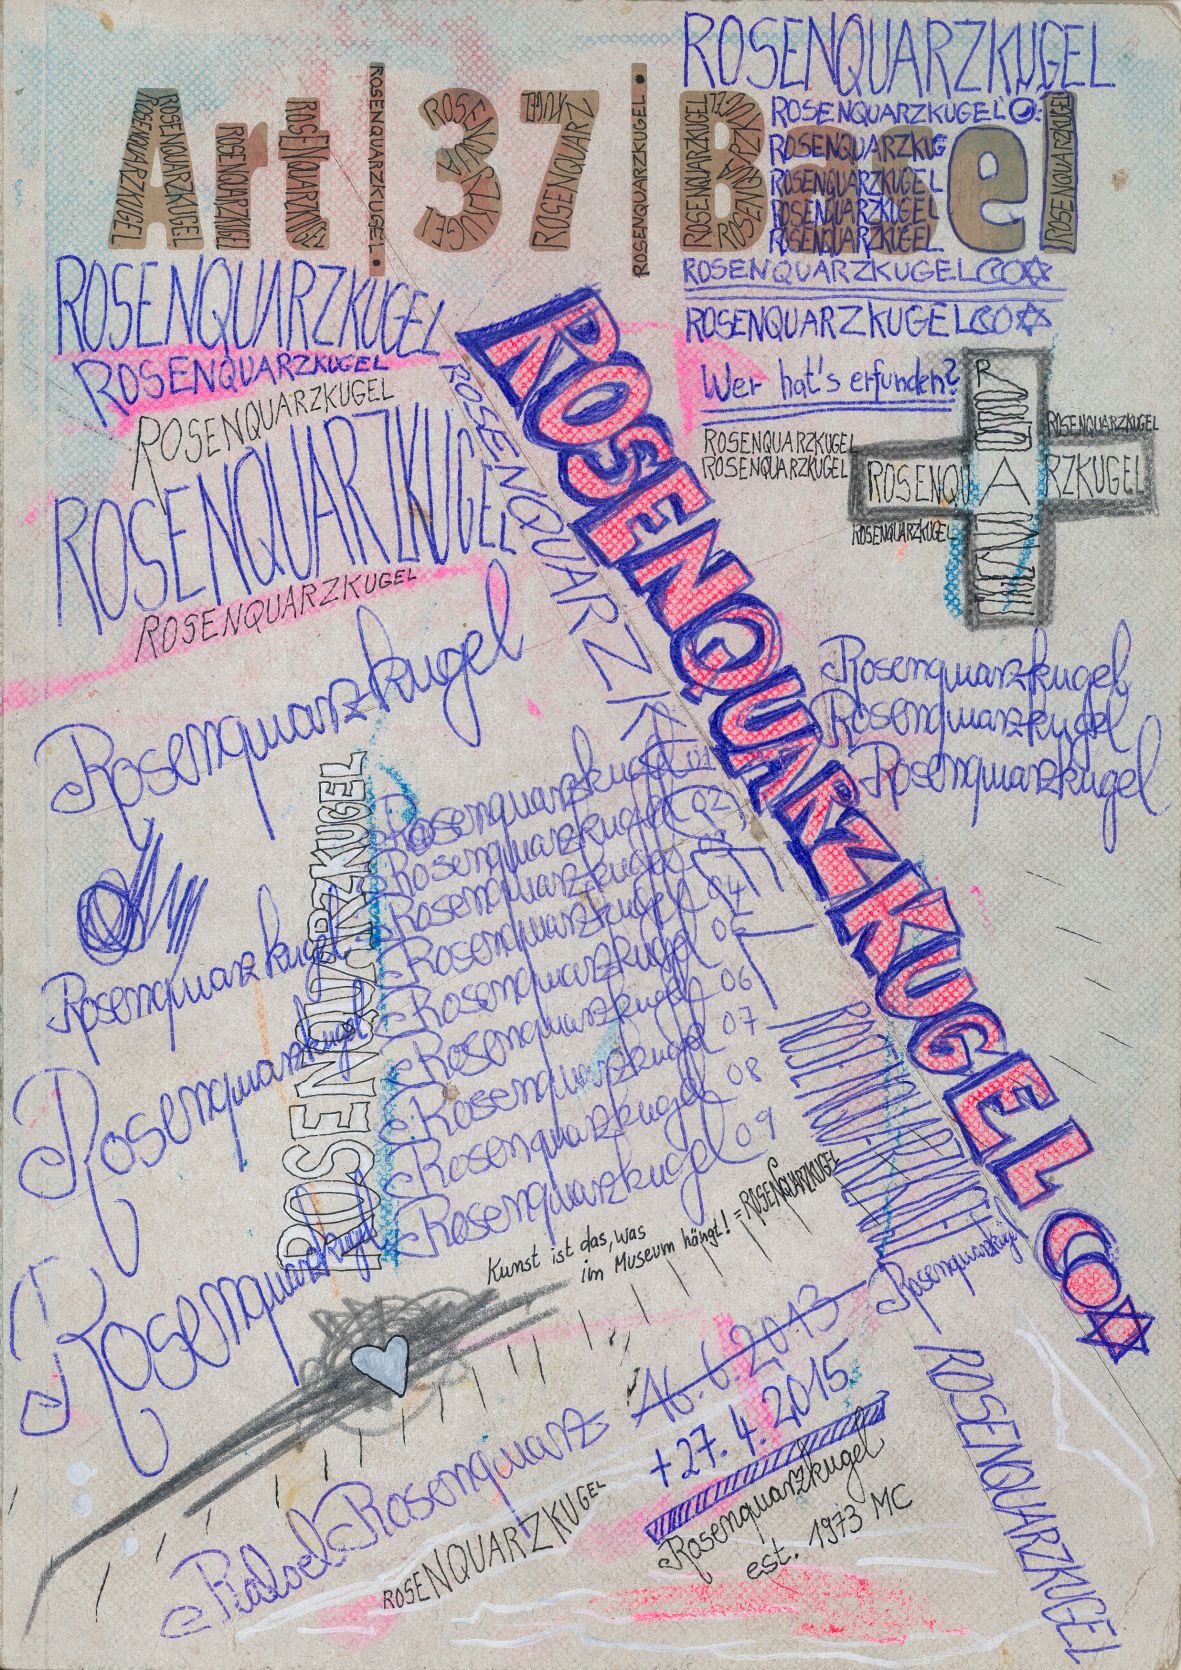 ROSENQUARZKUGEL
Art | 37 | Basel
ROSENQUARZKUGEL
ROSENQUARZKUGEL
ROSENQUARZKUGEL
ROSENQUARZKUGEL
ROSENQUARZKUGEL
ROSENQUARZKUGEL
ROSENQUARZKUGEL
ROSENQUARZKUGEL
ROSENQUARZKUGEL
ROSENQUARZKUGEL
ROSENQUARZKUG
ROSENQUARZKUGEL
ROSENQUARZKUGEL
ROSENQUARZKUGEL
ROSENQUARZKUGEL
ROSENQUARZKUGEL
ROSENQUARZKUGEL
Wer hat's erfunden?
ROSENQUARZKUGEL
ROSENQUARZKUGEL
ROSENQUARZKUGEL
ROSENQUARZKUGEL
ROSENQUARZKUGEL
ROSENQUARZKUGEL
ROSENQUARZKUGEL
ROSENQUARZKUGEL
ROSENQUARZKUGEL
ROSENQUARZKUGEL
ROSENQUARZKUGEL
ROSENQUARZK
Rosenquarzkugel
Rosenquarzkugel
Rosenquarzkugel
Rosenquarzkugel
ROSENQUARZKUGEL
Rosenquarzkugel 01
Rosenquarzkugel 02
Rosenquarzkugel
Rosenquarzkugel 04
Rosenquarzkugel 05
Rosenquarzkugel 06
Rosenquarzkugel 07
Rosenquarzkugel 08
Rosenquarzkugel 09
Rosenquarzkugel
Rosenquarzkugel
Rosenquarzkugel
ROSENQUARZKUGEL
Rosenquarzkugel
Kunst ist das, was
im Museum hängt! = ROSENQUARZKUGEL
16.6.2013
+27.4.2015
Rosenquarz
ROSENQUARZKUGEL
Rosenquarzkugel
est. 1973 MC
ROSENQUARZKUGEL